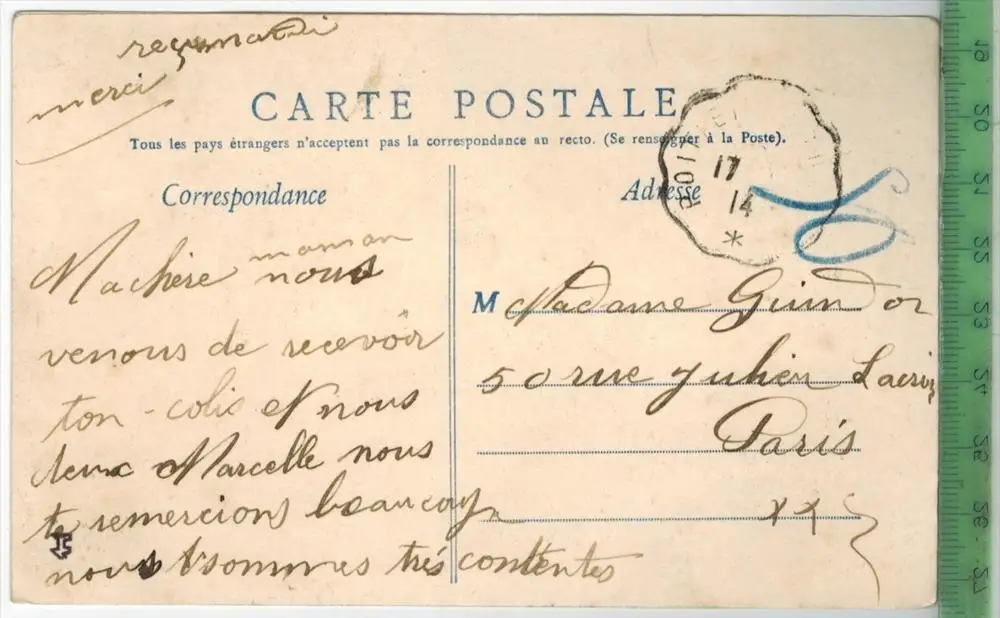 merci
CARTE POSTALE
Tous les pays étrangers n'acceptent pas la correspondance au recto. (Se renseigner à la Poste).
Correspondance
Ma chère maman nous
venons de recevoir
ton colis et nous
deux Marcelle nous
te remercions beaucoup
nous sommes très contentes
Adresse
17
14
*
M Madame Guindor
50 rue Julien Lacroix
Paris
XX